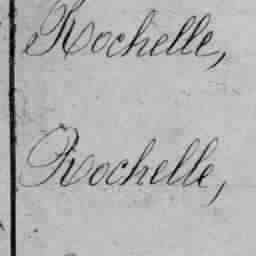 Rochelle,
Rochelle,